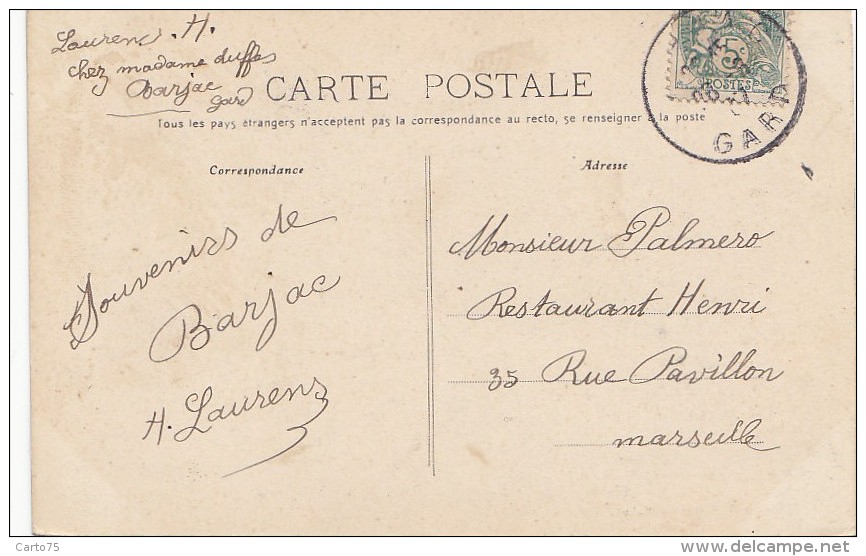 Laurens. H.
chez madame duffes
Barjac
gard
CARTE POSTALE
Tous les pays étrangers n'acceptent pas la correspondance au recto, se renseigner à la poste
5c
POSTES
GARD
Correspondance
Adresse
Souvenirs de
Barjac
H. Laurens
Monsieur Palmero
Restaurant Henri
35 Rue Pavillon
marseille
Carto75
www.delcampe.net